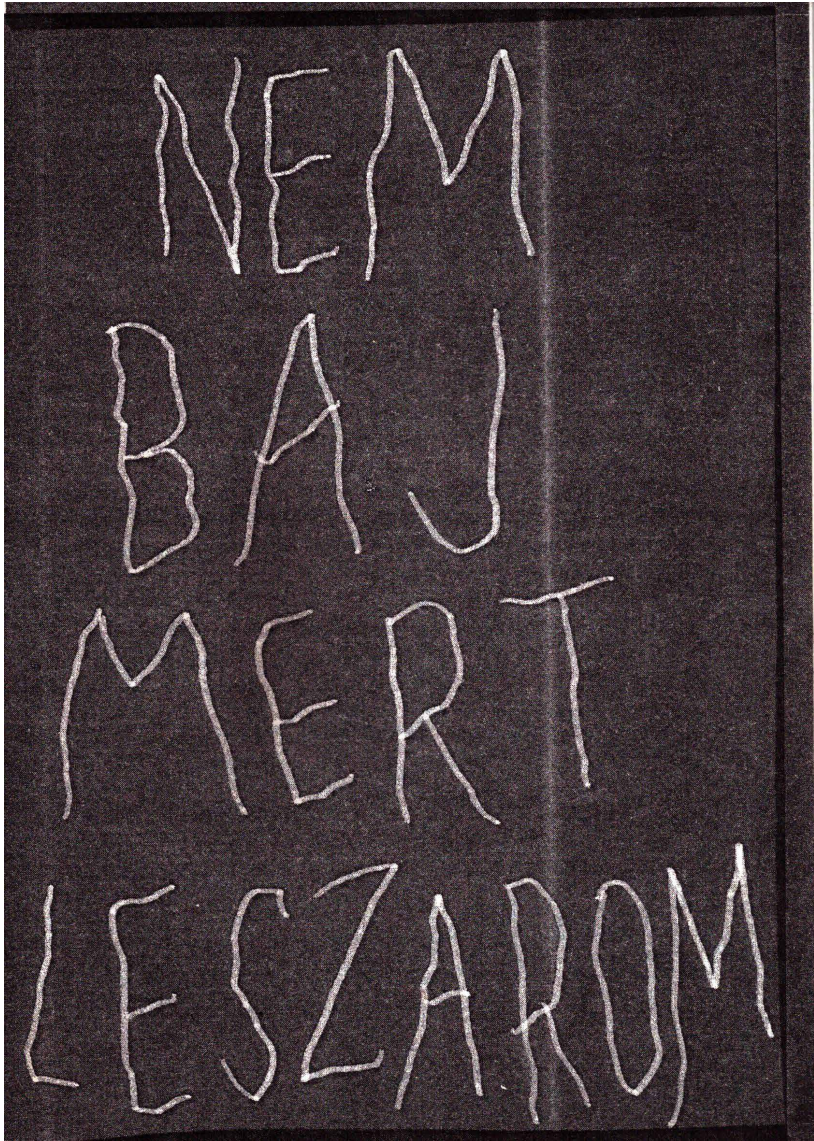 NEM
BAJ
MERT
LESZAROM